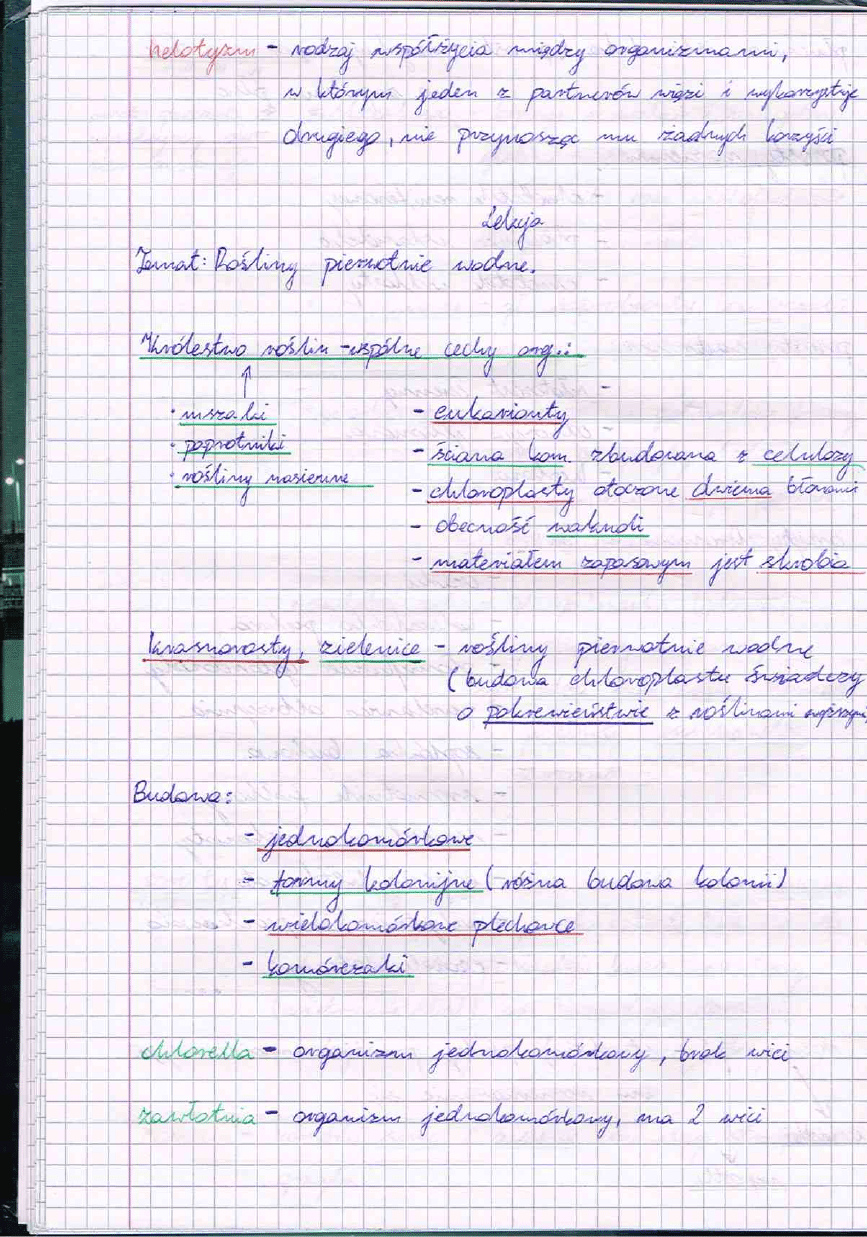 helotyzm - rodzaj współżycia między organizmami,
w którym jeden z partnerów więzi i wykorzystuje
drugiego, nie przynosząc mu żadnych korzyści
Lekcja
Temat: Rośliny pierwotnie wodne.
Królestwo roślin - wspólne cechy org.:
• mszaki
• paprotniki
• rośliny nasienne
- eukarionty
- ściana kom. zbudowana z celulozy
- chloroplasty otoczone dwiema błonami
- obecność wakuoli
- materiałem zapasowym jest skrobia
krasnorosty, zielenice - rośliny pierwotnie wodne
(budowa chloroplastu świadczy
o pokrewieństwie z roślinami wyższymi)
Budowa:
- jednokomórkowe
- formy kolonijne (różna budowa kolonii)
- wielokomórkowe plechowce
- komórczaki
chlorella - organizm jednokomórkowy, brak wici
zawłotnia - organizm jednokomórkowy, ma 2 wici